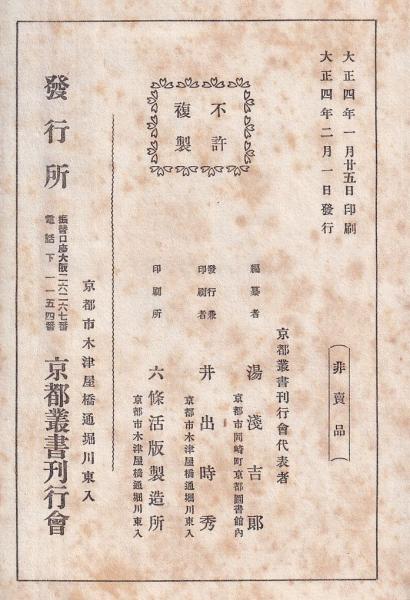 大正四年一月廿五日印刷
大正四年二月一日發行
(非賣品)
不許
複製
京都叢書刊行會代表者
編纂者 湯淺吉郎
京都市岡崎町京都圖書館內
發行兼
印刷者 井出時秀
京都市木津屋橋通堀川東入
印刷所 六條活版製造所
京都市木津屋橋通堀川東入
京都市木津屋橋通堀川東入
發行所 京都叢書刊行會
振替口座大阪二六二六七番
電話下一一五四番